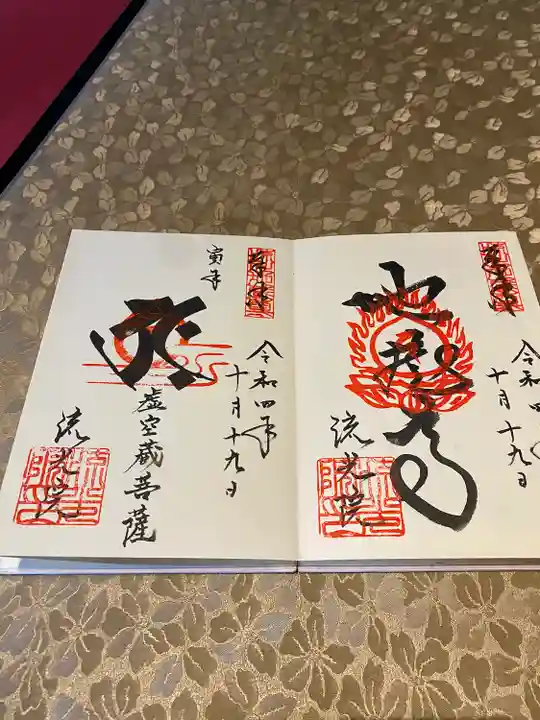 奉拝
令和四年
十月十九日
地蔵尊
流光院
奉拝
寅年
令和四年
十月十九日
虚空蔵菩薩
流光院